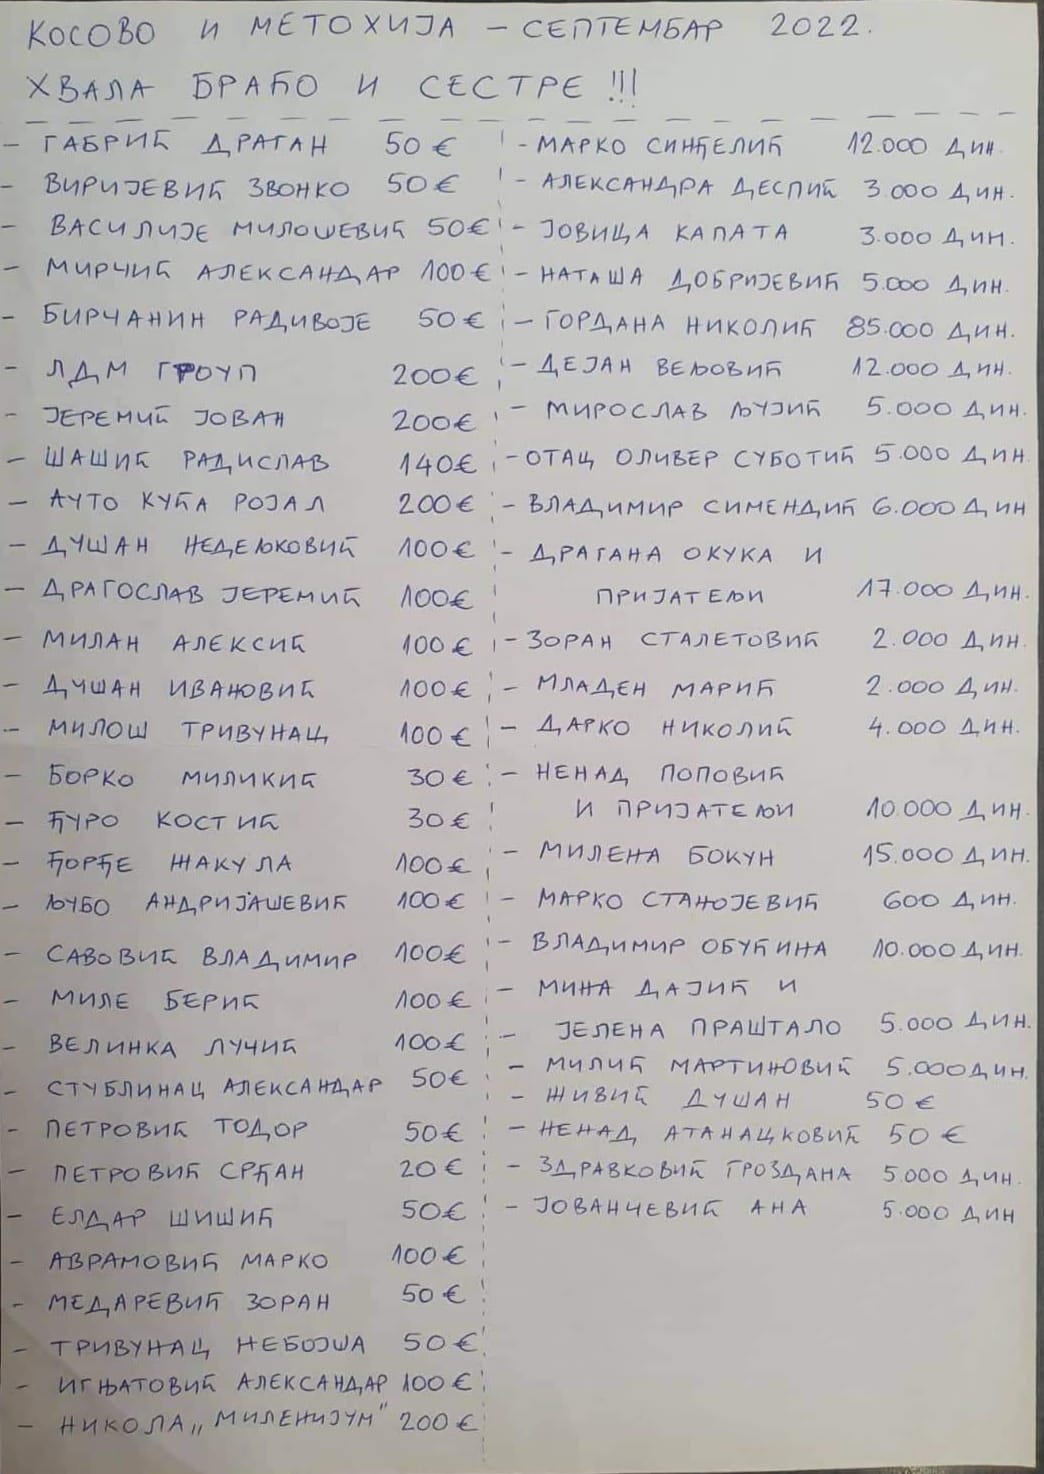 КОСОВО И МЕТОХИЈА – СЕПТЕМБАР 2022.
ХВАЛА БРАЋО И СЕСТРЕ !!!
- ГАБРИЋ ДРАГАН 50€
- ВИРИЈЕВИЋ ЗВОНКО 50€
- ВАСИЛИЈЕ МИЛОШЕВИЋ 50€
- МИРЧИЋ АЛЕКСАНДАР 100€
- БИРЧАНИН РАДИВОЈЕ 50€
- ЛДМ ГРОУП 200€
- ЈЕРЕМИЋ ЈОВАН 200€
- ШАШИЋ РАДИСЛАВ 140€
- АУТО КУЋА РОЈАЛ 200€
- ДУШАН НЕДЕЉКОВИЋ 100€
- ДРАГОСЛАВ ЈЕРЕМИЋ 100€
- МИЛАН АЛЕКСИЋ 100€
- ДУШАН ИВАНОВИЋ 100€
- МИЛОШ ТРИВУНАЦ 100€
- БОРКО МИЛИКИЋ 30€
- ЂУРО КОСТИЋ 30€
- ЂОРЂЕ ЖАКУЛА 100€
- ЉУБО АНДРИЈАШЕВИЋ 100€
- САВОВИЋ ВЛАДИМИР 100€
- МИЛЕ БЕРИЋ 100€
- ВЕЛИНКА ЛУЧИЋ 100€
- СТУБЛИНАЦ АЛЕКСАНДАР 50€
- ПЕТРОВИЋ ТОДОР 50€
- ПЕТРОВИЋ СРЂАН 20€
- ЕЛДАР ШИШИЋ 50€
- АВРАМОВИЋ МАРКО 100€
- МЕДАРЕВИЋ ЗОРАН 50€
- ТРИВУНАЦ НЕБОЈША 50€
- ИГЊАТОВИЋ АЛЕКСАНДАР 100€
- НИКОЛА „МИЛЕНИЈУМ" 200€
- МАРКО СИНЂЕЛИЋ 12.000 ДИН.
- АЛЕКСАНДРА ДЕСПИЋ 3.000 ДИН.
- ЈОВИЦА КАПАТА 3.000 ДИН.
- НАТАША ДОБРИЈЕВИЋ 5.000 ДИН.
- ГОРДАНА НИКОЛИЋ 85.000 ДИН.
- ДЕЈАН ВЕЉОВИЋ 12.000 ДИН.
- МИРОСЛАВ ЉУЈИЋ 5.000 ДИН.
- ОТАЦ ОЛИВЕР СУБОТИЋ 5.000 ДИН
- ВЛАДИМИР СИМЕНДИЋ 6.000 ДИН
- ДРАГАНА ОКУКА И
ПРИЈАТЕЉИ 17.000 ДИН.
- ЗОРАН СТАЛЕТОВИЋ 2.000 ДИН.
- МЛАДЕН МАРИЋ 2.000 ДИН.
- ДАРКО НИКОЛИЋ 4.000 ДИН.
- НЕНАД ПОПОВИЋ
И ПРИЈАТЕЉИ 10.000 ДИН.
- МИЛЕНА БОКУН 15.000 ДИН.
- МАРКО СТАНОЈЕВИЋ 600 ДИН.
- ВЛАДИМИР ОБУЋИНА 10.000 ДИН.
- МИНА ДАЈИЋ И
- ЈЕЛЕНА ПРАШТАЛО 5.000 ДИН.
- МИЛИЋ МАРТИНОВИЋ 5.000 ДИН.
- ЖИВИЋ ДУШАН 50 €
- НЕНАД АТАНАЦКОВИЋ 50 €
- ЗДРАВКОВИЋ ГРОЗДАНА 5.000 ДИН.
- ЈОВАНЧЕВИЋ АНА 5.000 ДИН